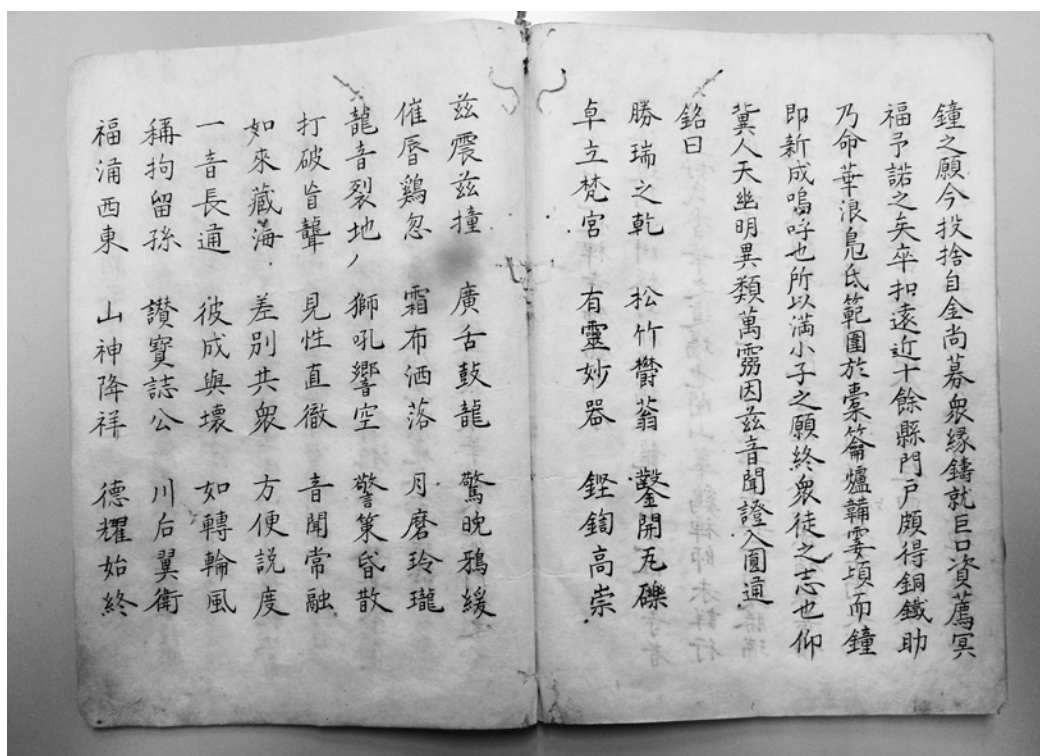 鐘之願今投捨自金尚募衆縁鑄就巨口資薦冥
福予諾之矣卒扣遠近十餘縣門戸頗得銅鐵助
乃命華浪鳬氏範圍於橐籥爐韛霎頃而鐘
即新成嗚呼也所以満小子之願終衆徒之志也仰
冀人天幽明異類萬霛因茲音聞證入圓通
銘曰
勝瑞之乾 松竹欝蓊 鑿開瓦礫
卓立梵宮 有靈妙器 鏗鍧高崇
茲震茲撞 廣舌鼓龍 驚晩鴉緩
催唇鷄忽 霜布洒落 月磨玲瓏
龍音裂地 獅吼響空 警策昏散
打破盲聾 見性直徹 音聞常融
如來藏海 差別共衆 方便説度
一音長通 彼成與壊 如轉輪風
稱拘留孫 讃寶誌公 川后翼衛
福涌西東 山神降祥 德耀始終